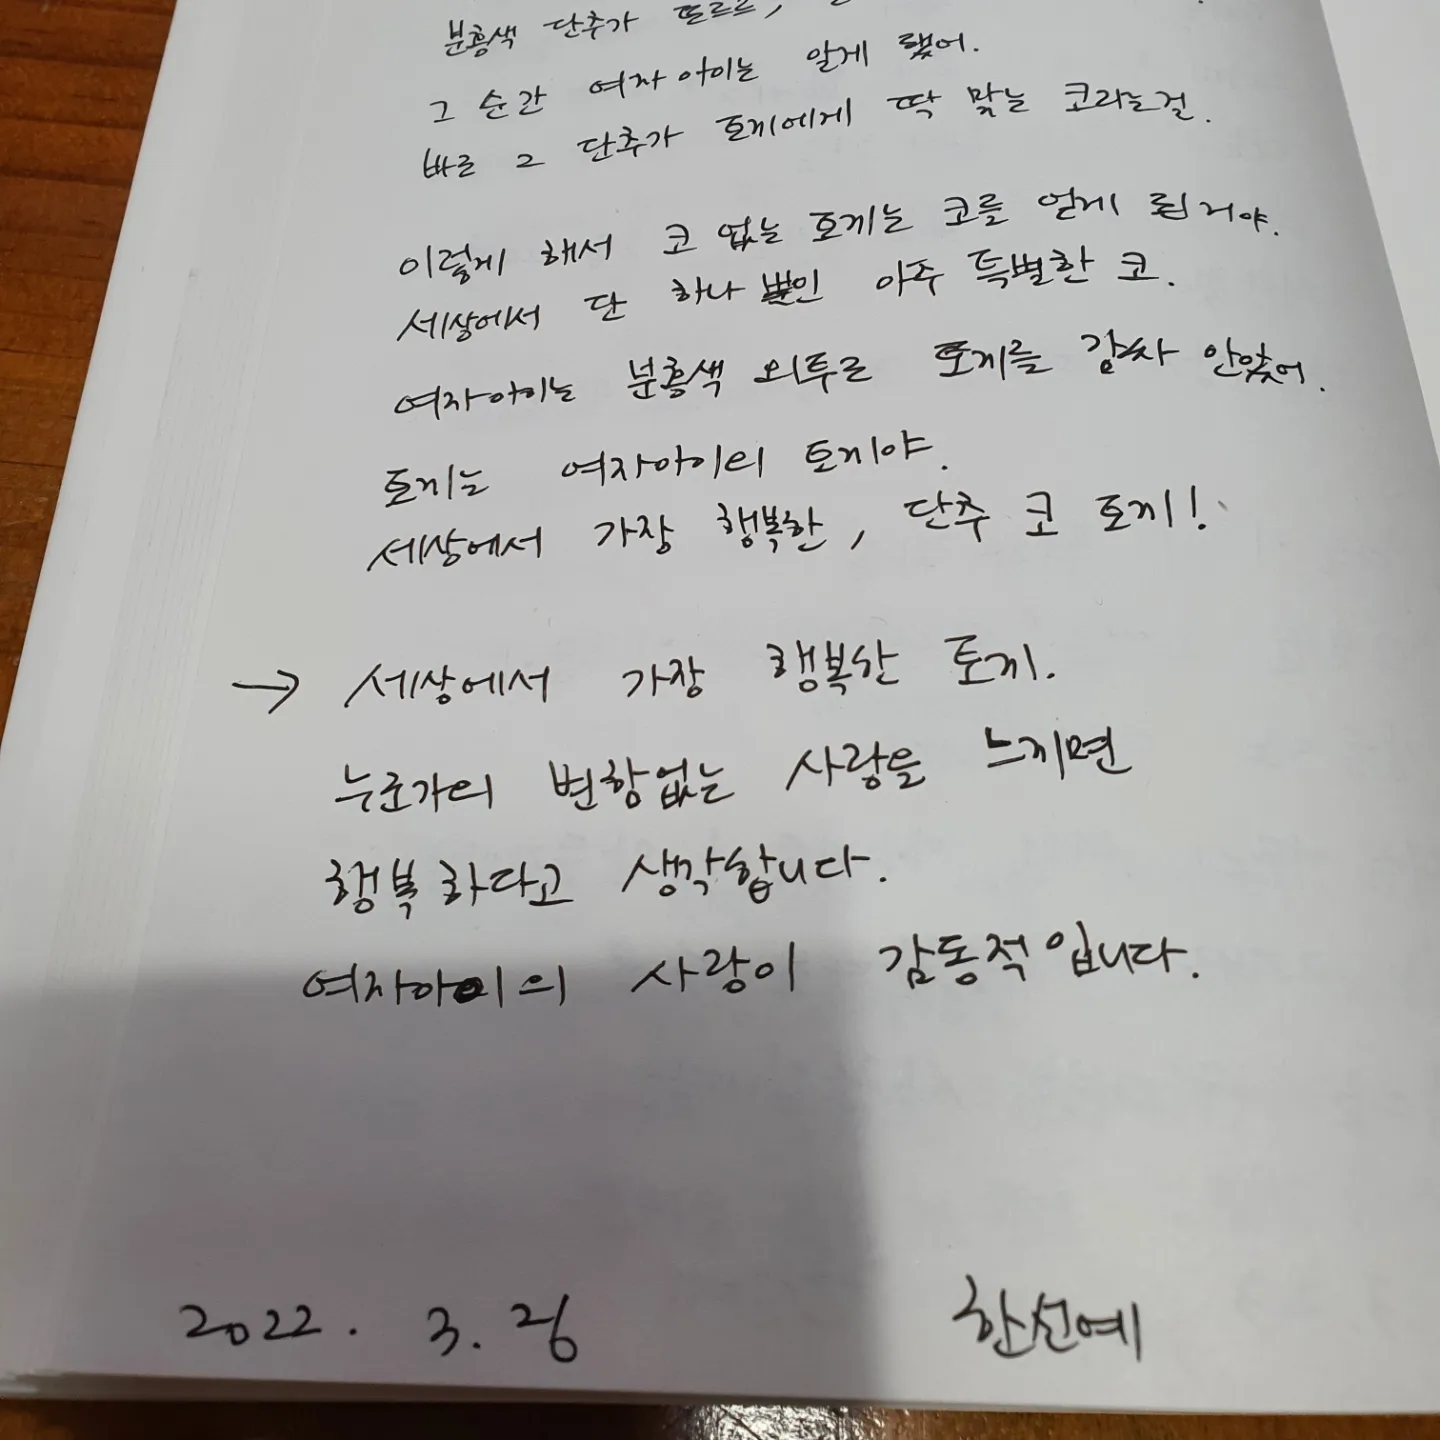 분홍색 단추가 또르르,
그 순간 여자아이는 알게 됐어.
바로 그 단추가 토끼에게 딱 맞는 코라는걸.
이렇게 해서 코 없는 토끼는 코를 얻게 된 거야.
세상에서 단 하나뿐인 아주 특별한 코.
여자아이는 분홍색 외투로 토끼를 감싸 안았어.
토끼는 여자아이의 토끼야.
세상에서 가장 행복한, 단추 코 토끼!
→ 세상에서 가장 행복한 토끼.
누군가의 변함없는 사랑을 느끼면
행복하다고 생각합니다.
여자아이의 사랑이 감동적입니다.
2022. 3. 26 한선예